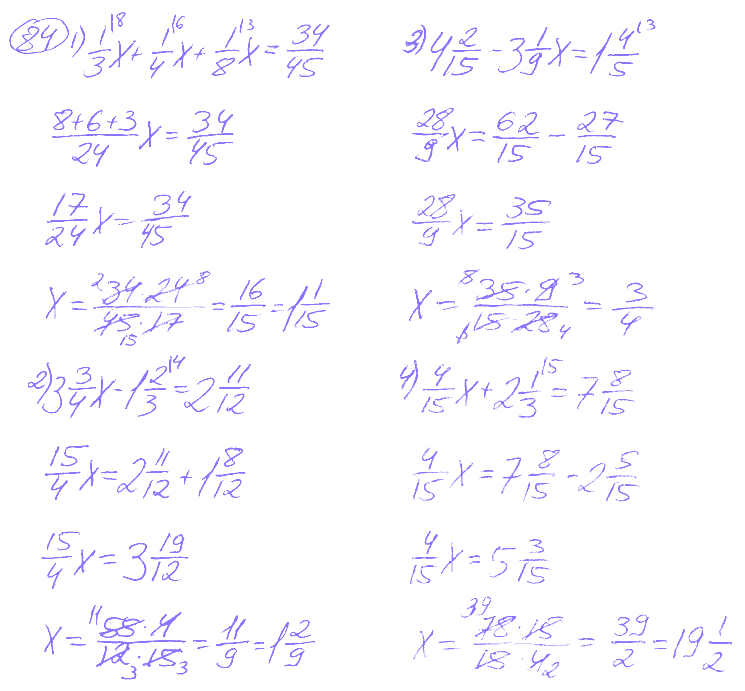 84 1) 1/3^{\8}x + 1/4^{\6}x + 1/8^{\3}x = 34/45
(8+6+3)/24 x = 34/45
17/24 x = 34/45
x = (34·24)/(45·17) = 16/15 = 1 1/15
2) 3 3/4 x - 1 2/3^{\4} = 2 11/12
15/4 x = 2 11/12 + 1 8/12
15/4 x = 3 19/12
x = (55·4)/(12·15) = 11/9 = 1 2/9
3) 4 2/15 - 3 1/9 x = 1 4/5^{\3}
28/9 x = 62/15 - 27/15
28/9 x = 35/15
x = (35·9)/(15·28) = 3/4
4) 4/15 x + 2 1/3^{\5} = 7 8/15
4/15 x = 7 8/15 - 2 5/15
4/15 x = 5 3/15
x = (78·15)/(15·4) = 39/2 = 19 1/2